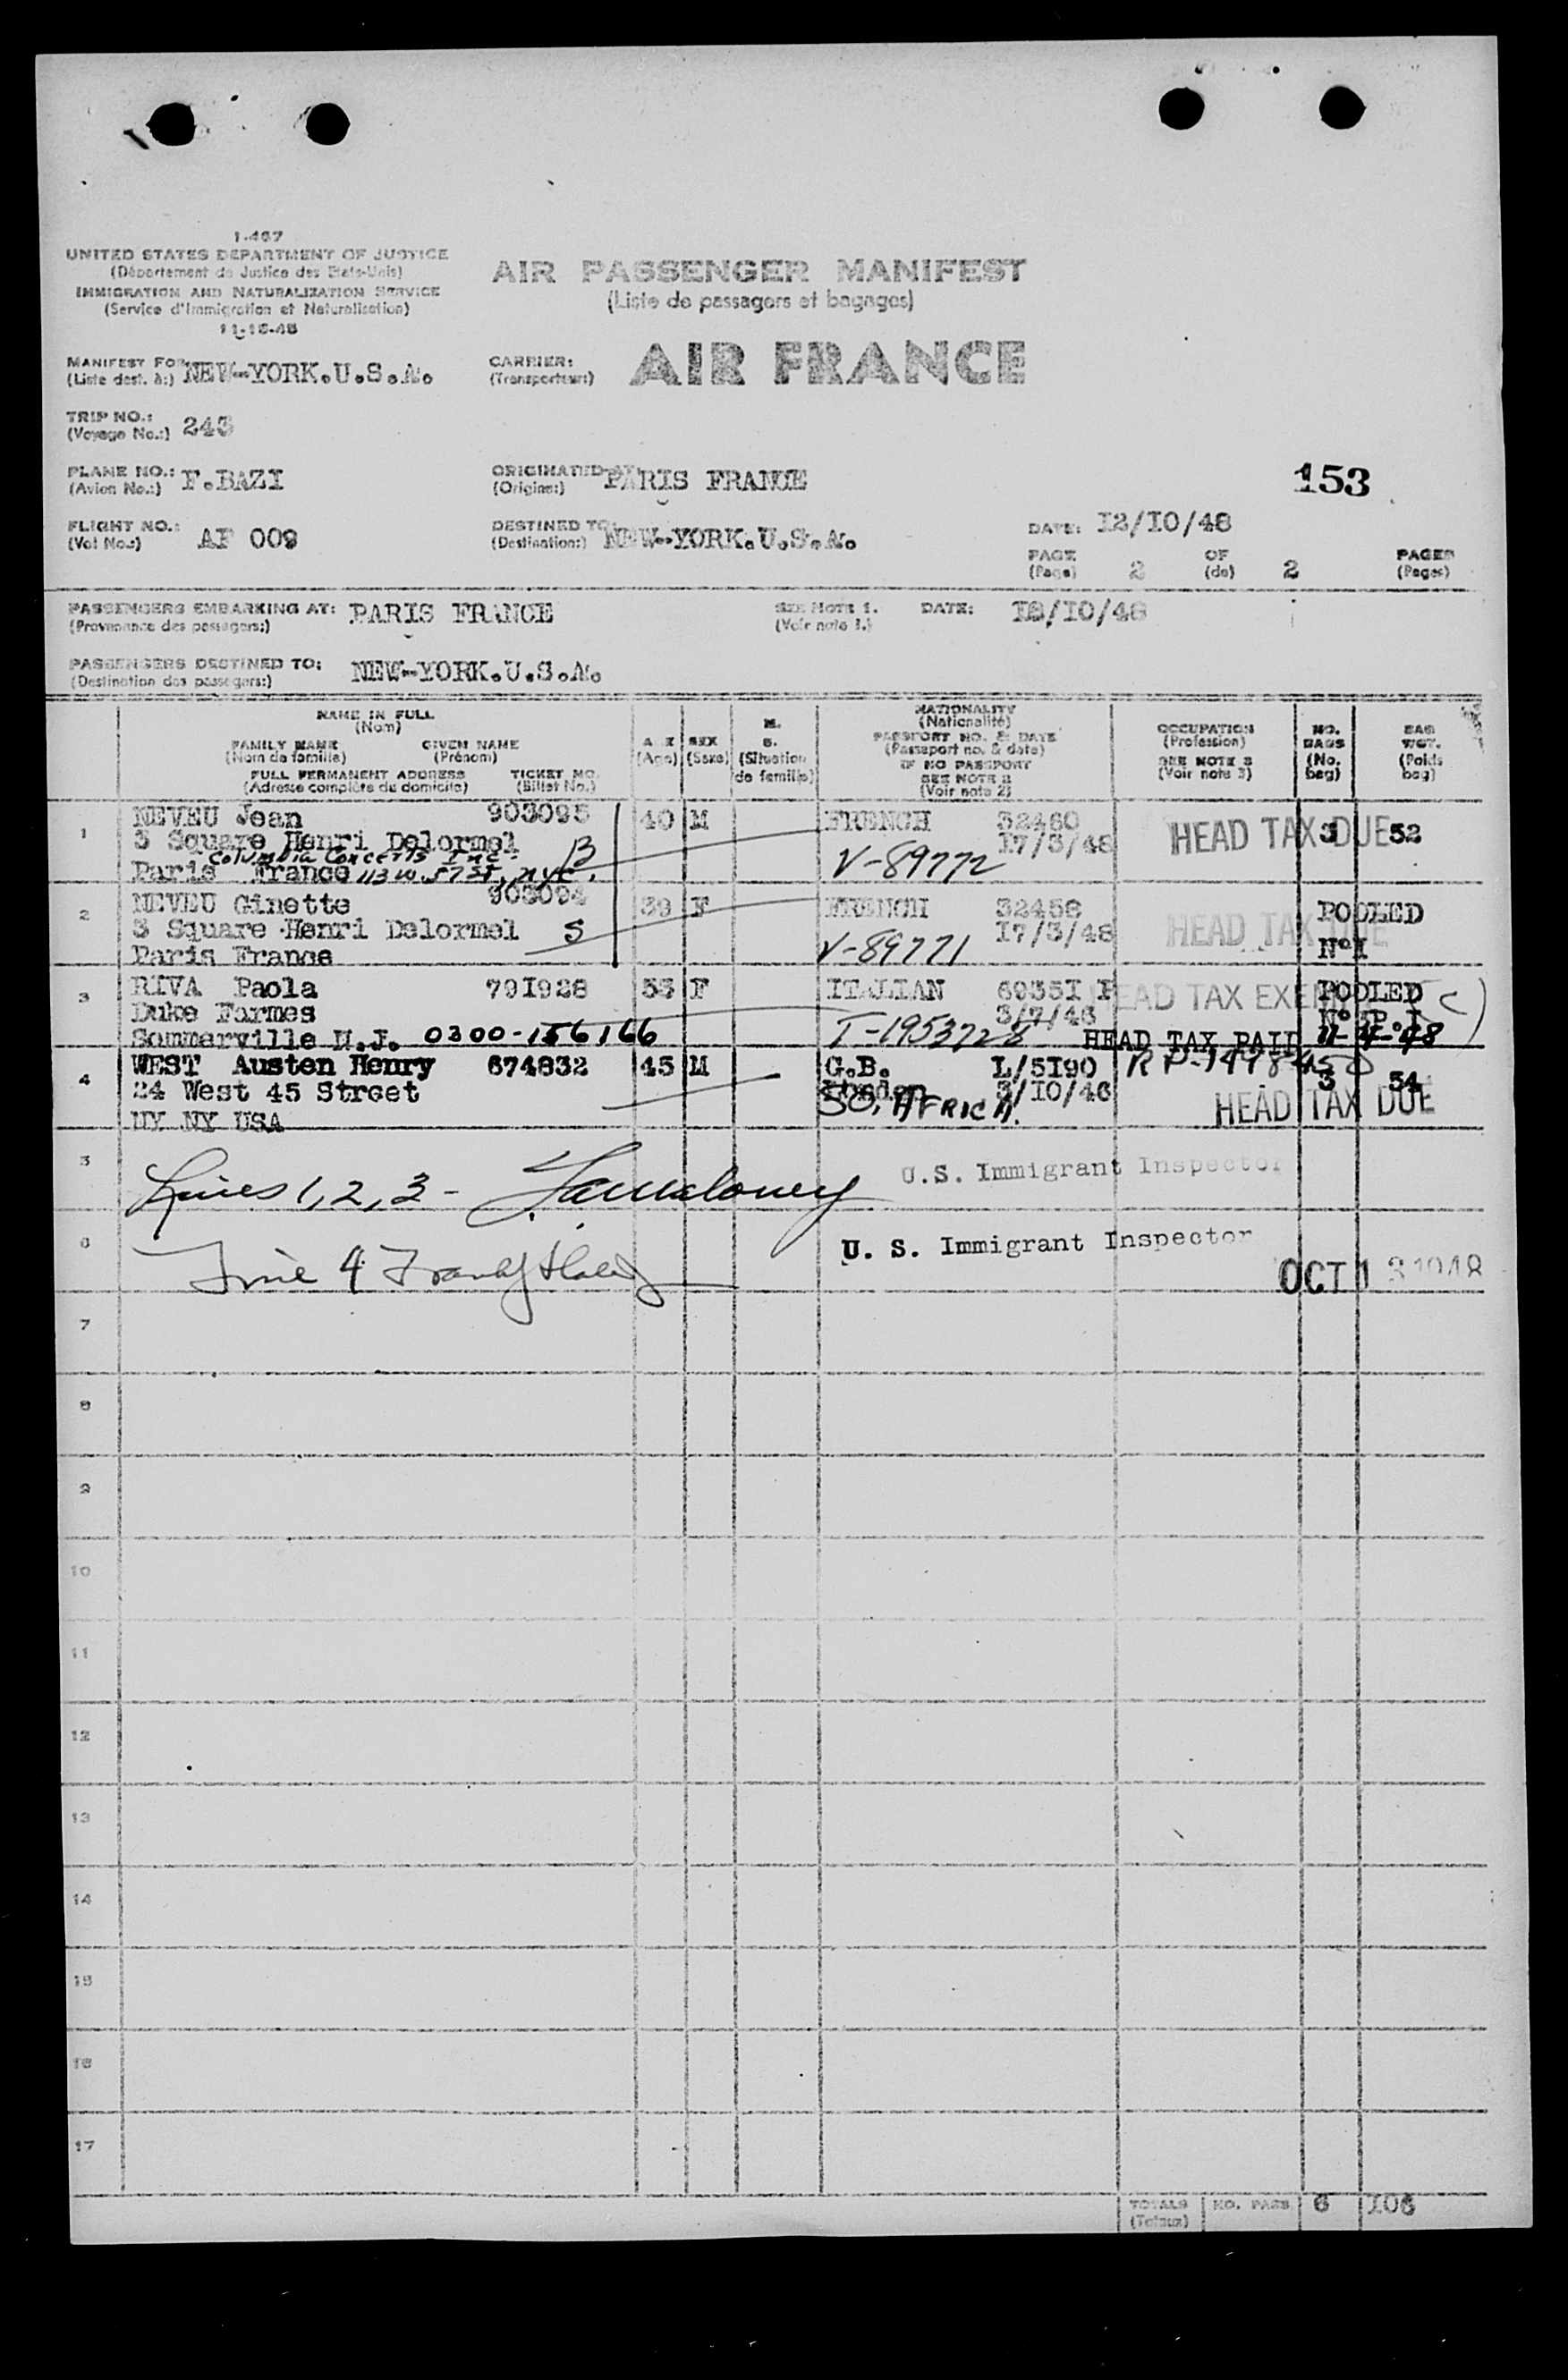 I-467
UNITED STATES DEPARTMENT OF JUSTICE
(Département de Justice des Etats-Unis)
IMMIGRATION AND NATURALIZATION SERVICE
(Service d'Immigration et Naturalisation)
11-15-45
AIR PASSENGER MANIFEST
(Liste de passagers et bagages)
MANIFEST FOR NEW-YORK.U.S.A.
(Liste dest. à:)
CARRIER: AIR FRANCE
(Transporteur:)
TRIP NO.: 243
(Voyage No.:)
PLANE NO.: F.BAZI
(Avion No.:)
ORIGINATED AT PARIS FRANCE
(Origine:)
153
FLIGHT NO.: AF 009
(Vol No.:)
DESTINED TO: NEW-YORK.U.S.A.
(Destination:)
DATE: I2/IO/48
PAGE 2 OF 2 PAGES
(Page) (de) (Pages)
PASSENGERS EMBARKING AT: PARIS FRANCE
(Provenance des passagers:)
SEE NOTE 1.
(Voir note 1.)
DATE: I2/IO/48
PASSENGERS DESTINED TO: NEW-YORK.U.S.A.
(Destination des passagers:)
NAME IN FULL
(Nom)
FAMILY NAME GIVEN NAME
(Nom de famille) (Prénom)
FULL PERMANENT ADDRESS TICKET NO.
(Adresse complète du domicile) (Billet No.)
AGE
(Age)
SEX
(Sexe)
M.
S.
(Situation
de famille)
NATIONALITY
(Nationalité)
PASSPORT NO. & DATE
(Passeport no. & date)
IF NO PASSPORT
SEE NOTE 2
(Voir note 2)
OCCUPATION
(Profession)
SEE NOTE 3
(Voir note 3)
NO.
BAGS
(No.
bag)
BAG
WGT.
(Poids
bag)
1 NEVEU Jean 903095 40 M FRENCH 32460 HEAD TAX DUE 3 52
3 Square Henri Delormel 17/3/48
Columbia Concerts Inc. B
Paris France 113 W. 57 St, NYC. V-89772
2 NEVEU Ginette 903094 39 F FRENCH 32458 HEAD TAX DUE POOLED
3 Square Henri Delormel S I7/3/48 N°I
Paris France V-89771
3 RIVA Paola 79I928 F ITALIAN 6935I P HEAD TAX EXEMPT POOLED
Duke Farmes 3/7/46
Sommerville N.J. 0300-156166 T-1953728 HEAD TAX PAID 11-4-48
4 WEST Austen Henry 674832 45 M G.B. L/5I90 3 54
24 West 45 Street London 3/IO/46
SO. AFRICA. HEAD TAX DUE
NY NY USA
5 Lines 1, 2, 3 - U.S. Immigrant Inspector
6 Line 4 U. S. Immigrant Inspector
OCT 13 1948
7
8
9
10
11
12
13
14
15
16
17
TOTALS NO. PASS 6 I06
(Totaux)